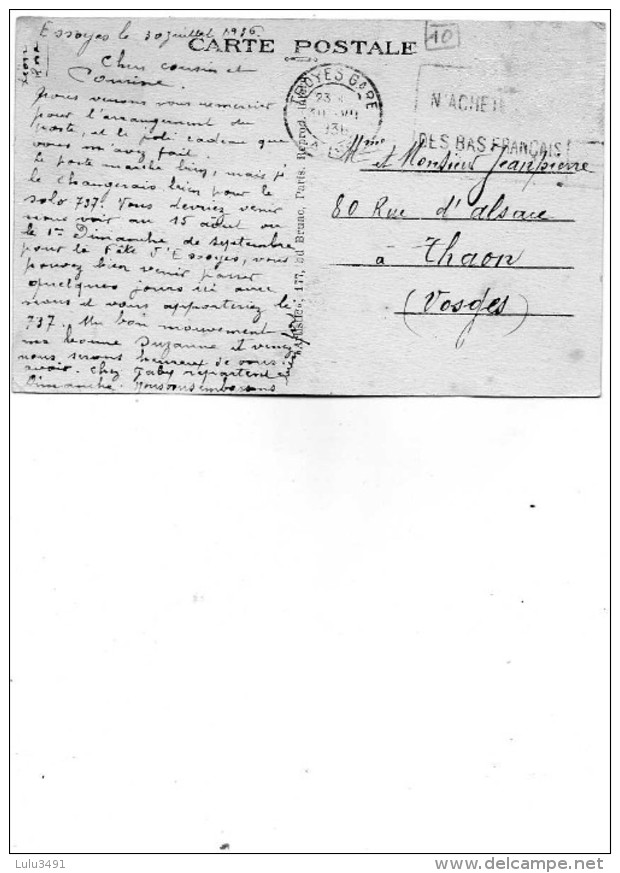 Essoyes le 30 juillet 1936
CARTE POSTALE
10
Chers cousin et
Cousine.
nous venons vous remercier
pour l'arrangement du
poste, et le joli cadeau que
vous m'avez fait.
Le poste marche bien, mais je
le changerais bien pour le
solo 737. Vous devriez venir
nous voir au 15 août ou
le 1er Dimanche de septembre
pour la fête d'Essoyes, vous
pouvez bien venir passer
quelques jours ici avec
nous et vous apporteriez le
737. Un bon mouvement
ma bonne Suzanne et venez
nous serons heureux de vous
avoir. Chez Gaby repartent
Dimanche. Nous vous embrassons
177, Bd Brune, Paris. Reprod.
TROYES GARE
23
30 VII
936
N'ACHETE
DES BAS FRANÇAIS!
Mme et Monsieur Jeanpierre
80 Rue d'alsace
a Thaon
(Vosges)
Lulu3491
www.delcampe.net